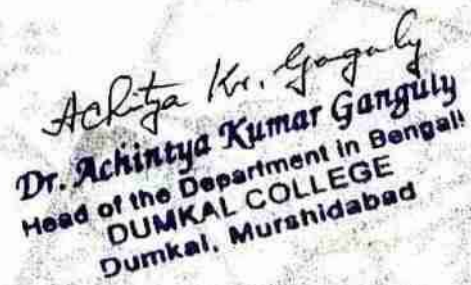 Achitya Kr. Gaguly
Dr. Achintya Kumar Ganguly
Head of the Department in Bengali
DUMKAL COLLEGE
Dumkal, Murshidabad